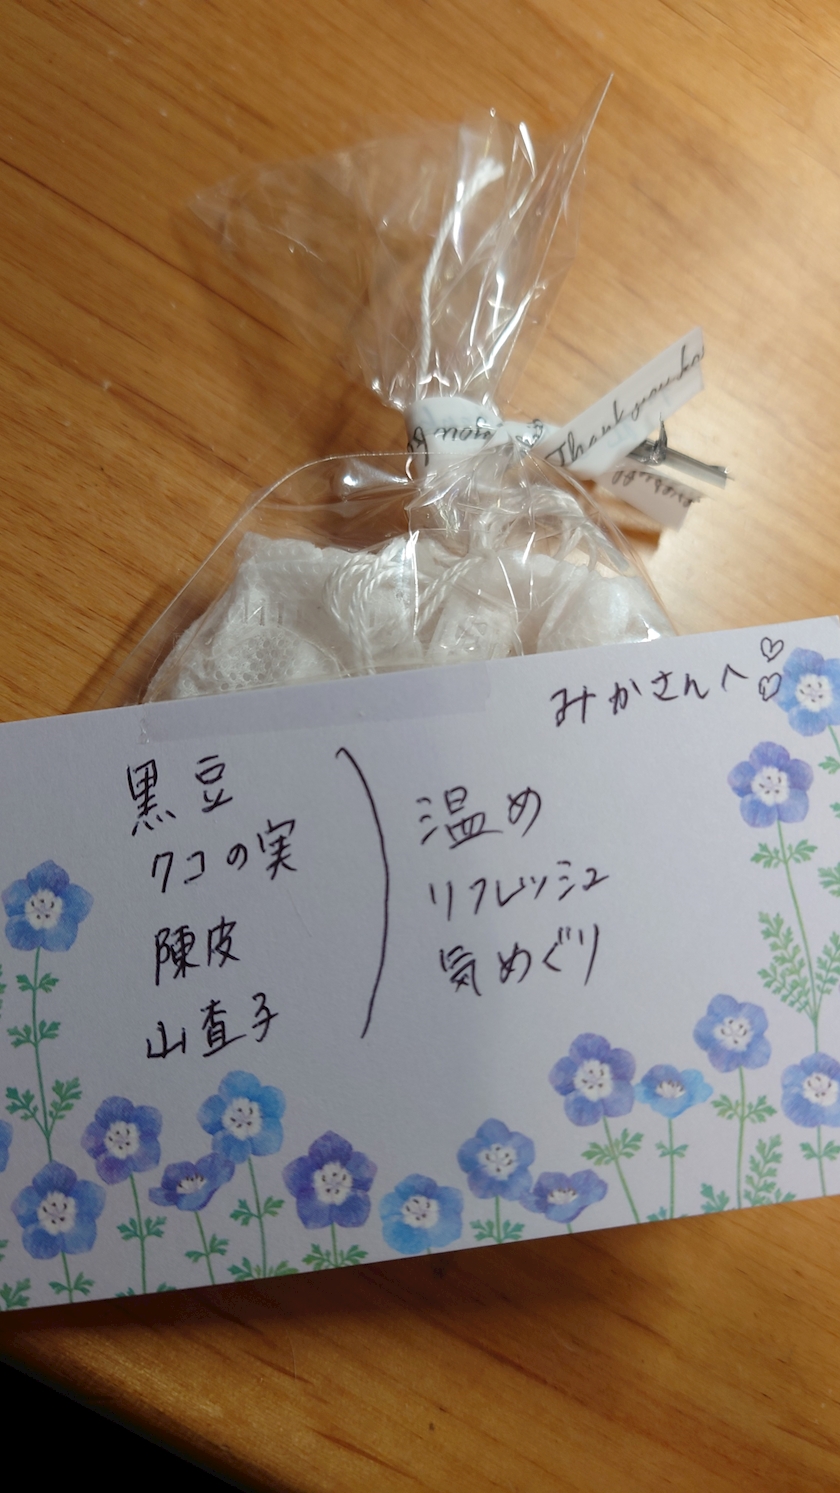 Thank you for
you for
みかさんへ♡♡
黒豆
クコの実
陳皮
山査子
温め
リフレッシュ
気めぐり